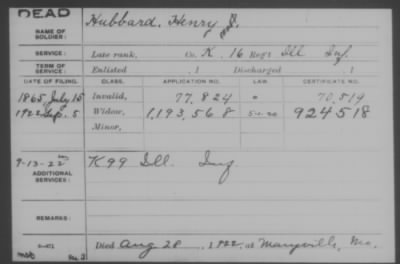 DEAD
NAME OF SOLDIER: Hubbard, Henry S.
SERVICE: Late rank, Co. K, 16 Reg't Ill Inf.
TERM OF SERVICE: Enlisted , 1 Discharged , 1
DATE OF FILING. CLASS. APPLICATION NO. LAW. CERTIFICATE NO.
1865, July 15 Invalid, 77,824 70,519
1922 Sep. 5 Widow, 1,193,568 5-1-20 924518
Minor,
9-13-22 K 99 Ill Inf
ADDITIONAL SERVICES:
REMARKS:
Died Aug 28, 1922, at Maryville, Mo.